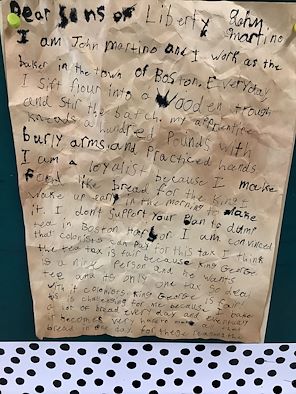 Dear Sons of Liberty John Martino
I am John Martino and I work as the
baker in the town of Boston. Everyday
I sift flour into a Wooden trough
and Stir the batch. my apprentice
kneads a hundred pounds with
burly arms and practiced hands
I am a loyalist because I make
Food like bread for the King I
wake up early in the morning to make
it I don't support your plan to dump
tea in Boston Harbor I am convinced
that colonists can pay for this tax I think
the tea tax is fair because King George
is a nice person and he wants
tea and its only one tax so
with colonists King George
is challenging for me because I
a lot of bread every day and
it becomes very hard to make
bread in one day for these reasons